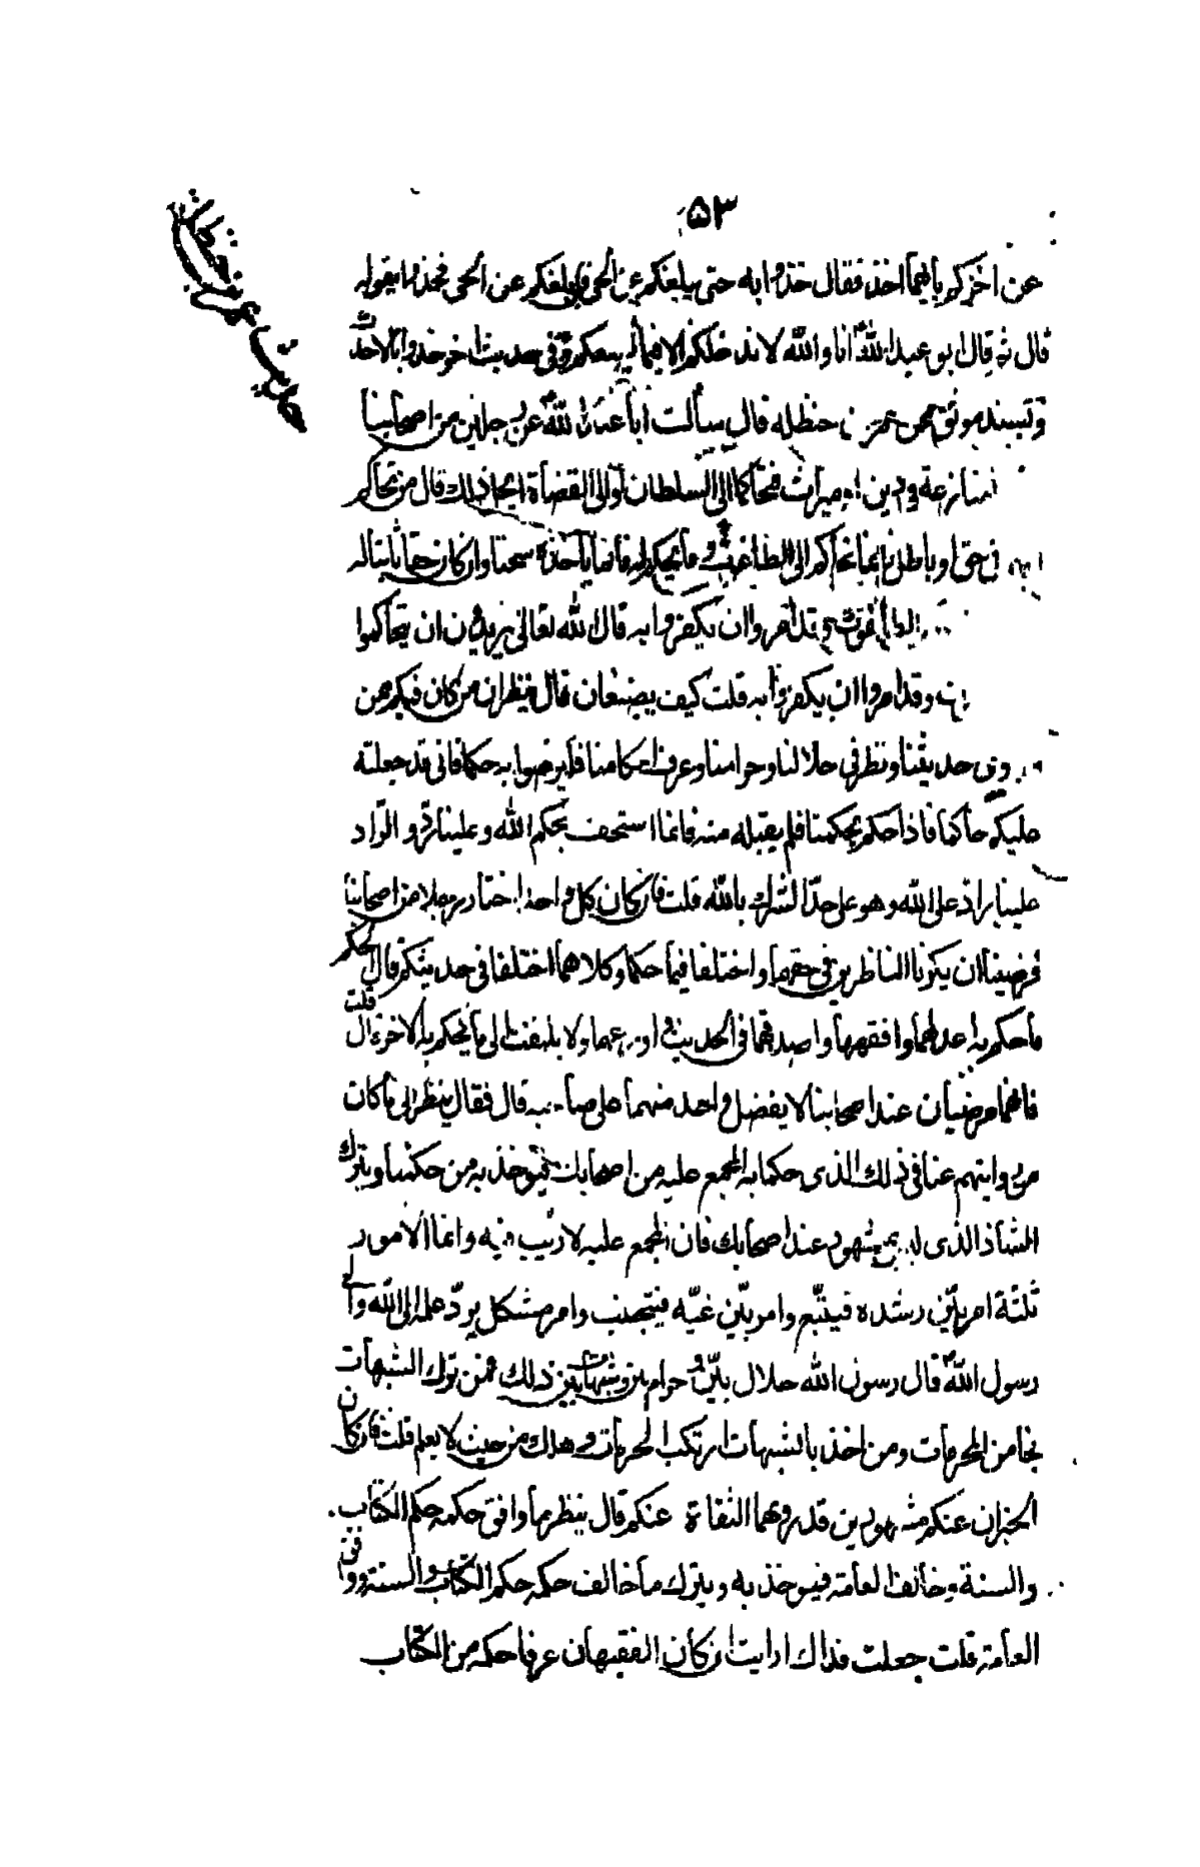 ۵۳
حدیث عمر بن حنظلة
عن اخركم بايهما اخذ فقال خذوا به حتى يبلغكم عن الحى فان بلغكم عن الحى فخذوا بقوله
قال ثم قال ابو عبد الله انا والله لا ندخلكم الا فيما يسعكم وفى حديث اخر خذوا بالاحدث
وبسند موثق عن عمر بن حنظله قال سألت ابا عبد الله عن رجلين من اصحابنا
منازعة فى دين او ميراث فتحاكما الى السلطان او الى القضاة ايحل ذلك قال من تحاكم
فى حق او باطل فانما تحاكم الى الطاغوت وما يحكم له فانما يأخذه سحتا وان كان حقا ثابتا له
الطاغوت وقد امروا ان يكفروا به قال الله تعالى يريدون ان يتحاكموا
وقد امروا ان يكفروا به قلت كيف يصنعان قال ينظران من كان فيكم ممن
روى حديثنا ونظر فى حلالنا وحرامنا وعرف احكامنا فليرضوا به حكما فانى قد جعلته
عليكم حاكما فاذا حكم بحكمنا فلم يقبله منه فانما استخف بحكم الله وعلينا ردّ والرّاد
علينا راد على الله وهو على حدّ الشرك بالله قلت فان كان كل واحد اختار رجلا من اصحابنا
فرضينا ان يكونا الناظرين فى حقهما واختلفا فيما حكما وكلاهما اختلفا فى حديثكم قال الحكم
ما حكم به اعدلهما وافقههما واصدقهما فى الحديث واورعهما ولا يلتفت الى ما يحكم به الاخر قال قلت
فانهما مرضيان عند اصحابنا لا يفضل واحد منهما على صاحبه قال فقال ينظر الى ما كان
من روايتهم عنا فى ذلك الذى حكما به المجمع عليه من اصحابك فيؤخذ به من حكمنا ويترك
الشاذ الذى ليس بمشهور عند اصحابك فان المجمع عليه لا ريب فيه وانما الامور
ثلثة امر بيّن رشده فيتبّع وامر بيّن غيّه فيتجنب وامر مشكل يردّ علمه الى الله والى
رسول الله قال رسول الله حلال بيّن وحرام بين وشبهات بين ذلك فمن ترك الشبهات
نجا من المحرمات ومن اخذ بالشبهات ارتكب المحرمات وهلك من حيث لا يعلم قلت فان كان
الخبران عنكم مشهورين قد رويهما الثقاة عنكم قال ينظر ما وافق حكمه حكم الكتاب
والسنة وخالف العامة فيؤخذ به ويترك ما خالف حكمه حكم الكتاب والسنة ووافق
العامة قلت جعلت فداك ارايت ان كان الفقيهان عرفا حكمه من الكتاب